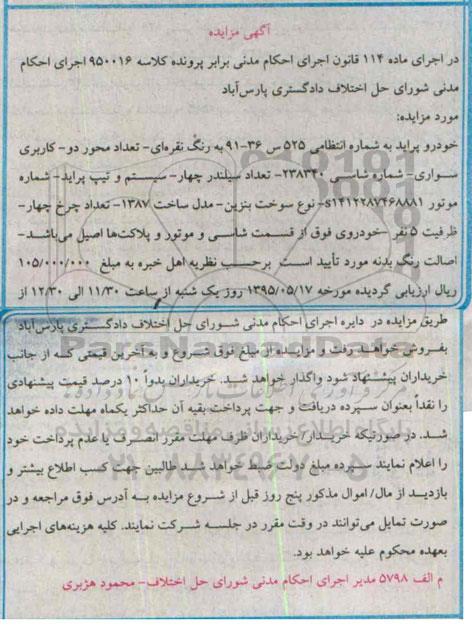 آگهی مزایده
در اجرای ماده ۱۱۴ قانون اجرای احکام مدنی برابر پرونده کلاسه ۹۵۰۰۱۶ اجرای احکام
مدنی شورای حل اختلاف دادگستری پارس‌آباد
مورد مزایده:
خودرو پراید به شماره انتظامی ۵۲۵ س ۳۶-۹۱ به رنگ نقره‌ای- تعداد محور دو- کاربری
سواری- شماره شاسی ۲۳۸۳۴۰- تعداد سیلندر چهار- سیستم و تیپ پراید- شماره
موتور s۱۴۱۲۲۸۷۴۶۸۸۸۱- نوع سوخت بنزین- مدل ساخت ۱۳۸۷- تعداد چرخ چهار-
ظرفیت ۵ نفر -خودروی فوق از قسمت شاسی و موتور و پلاکت‌ها اصیل می‌باشد-
اصالت رنگ بدنه مورد تأیید است برحسب نظریه اهل خبره به مبلغ ۱۰۵/۰۰۰/۰۰۰
ریال ارزیابی گردیده مورخه ۱۳۹۵/۰۵/۱۷ روز یک شنبه از ساعت ۱۱/۳۰ الی ۱۲/۳۰ از
طریق مزایده در دایره اجرای احکام مدنی شورای حل اختلاف دادگستری پارس‌آباد
بفروش خواهد رفت و مزایده از مبلغ فوق شروع و به آخرین قیمتی که از جانب
خریداران پیشنهاد شود واگذار خواهد شد. خریداران بدواً ۱۰ درصد قیمت پیشنهادی
را نقداً بعنوان سپرده دریافت و جهت پرداخت بقیه آن حداکثر یکماه مهلت داده خواهد
شد. در صورتیکه خریدار/ خریداران ظرف مهلت مقرر انصراف یا عدم پرداخت خود
را اعلام نمایند سپرده مبلغ دولت ضبط خواهد شد طالبین جهت کسب اطلاع بیشتر و
بازدید از مال/ اموال مذکور پنج روز قبل از شروع مزایده به آدرس فوق مراجعه و در
صورت تمایل می‌توانند در وقت مقرر در جلسه شرکت نمایند. کلیه هزینه‌های اجرایی
بعهده محکوم علیه خواهد بود.
م الف ۵۷۹۸ مدیر اجرای احکام مدنی شورای حل اختلاف- محمود هژبری
ParsNamadData
پایگاه اطلاع رسانی مناقصه و مزایده
۰۲۱-۸۸۳۴۹۶۷۰-۵